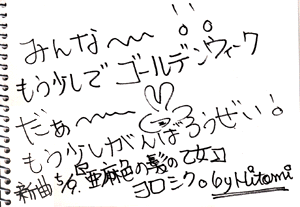 みんな〜〜!!
もう少しでゴールデンウィーク
だぁ〜〜
もう少しがんばろうぜい!
新曲5/9.『亜麻色の髪の乙女』
ヨロシク。by Hitomi